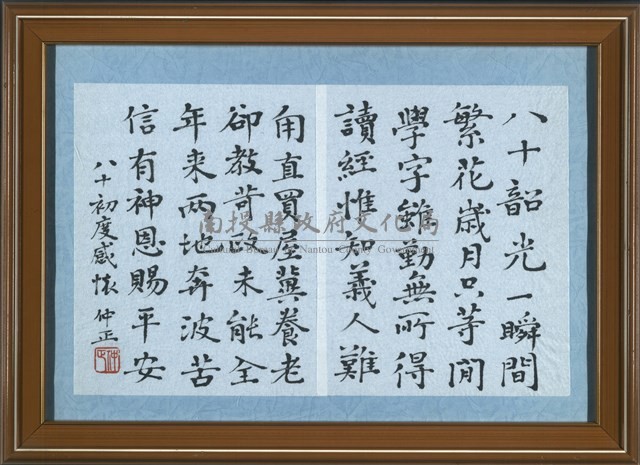 八十韶光一瞬間
繁花歲月只等閒
學字雖勤無所得
讀經惟知義人難
甪直買屋冀養老
卻教苛政未能全
年来兩地奔波苦
信有神恩賜平安
八十初度感懷 仲正
南投縣政府文化局
Cultural Bureau of Nantou County Government